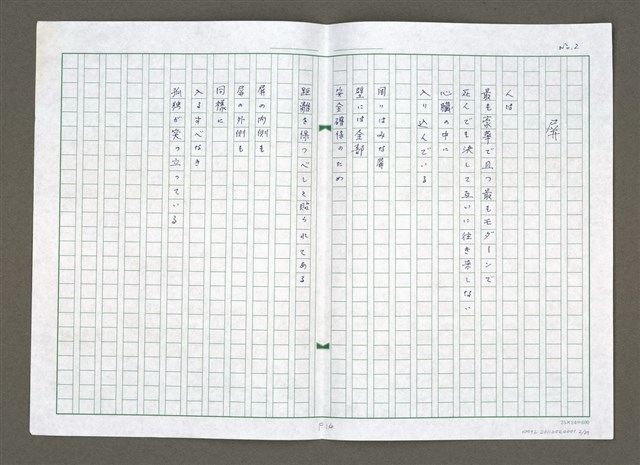 No.2
屏
人は
最も豪華で且つ最もモダーンで
死んでも決して互いに往き来しない
心臓の中に
入り込んでいる
周りはみな屏
壁には全部
安全確保のため
距離を保つべしと貼られてある
屏の内側も
屏の外側も
同様に
入るすべなき
孤独が突っ立っている
P.16
25×24=600